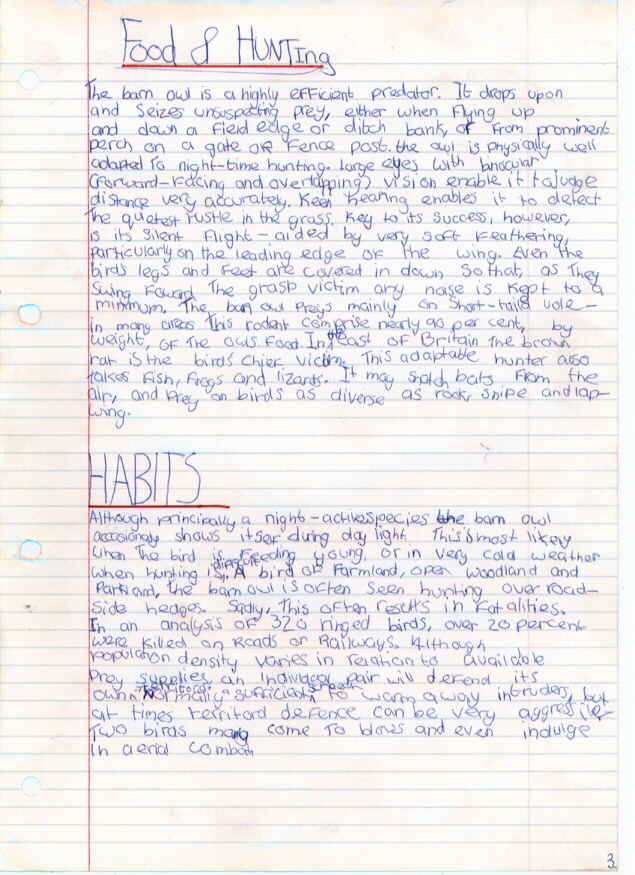 Food & HUNTing
The barn owl is a highly efficient predator. It drops upon
and seizes unsuspecting prey, either when flying up
and down a field edge or ditch bank, or from prominent
perch on a gate or fence post. the owl is physically well
adapted to night-time hunting. Large eyes with binocular
(forward-facing and overlapping) vision enable it to Judge
distance very accurately. Keen hearing enables it to detect
the quetest rustle in the grass. Key to its success, however,
is its silent flight - aided by very soft feathering,
particularly on the leading edge of the wing. Even the
birds legs and feet are covered in down so that, as they
swing foward the grasp victim any noise is kept to a
minimum. The barn owl preys mainly on short-taild vole-
in many areas this rodent comprise nearly 90 per cent, by
weight, of the owls food. In the east of Britain the brown
rat is the bird's chief victim. This adaptable hunter also
takes fish, frogs and lizards. It may snatch bats from the
air, and prey on birds as diverse as rook, snipe and lap-
wing.
HABITS
Although principally a night-active species the barn owl
occasionaly shows itself during day light. This is most likely
when the bird is feeding young, or in very cold weather
when hunting is A bird of farmland, open woodland and
Parkland, the barn owl is often seen hunting over road-
side hedges. Sadly, this often results in fatalities.
In an analysis of 320 ringed birds, over 20 percent
were killed on Roads or Railways. Although
population density varies in relation to available
prey supplies, an individual pair will defend its
own territorial Normally sufficient screech to warn away intruders, but
at times territorol defence can be very aggressive
Two birds may come to blows and even indulge
in aerial combat
3